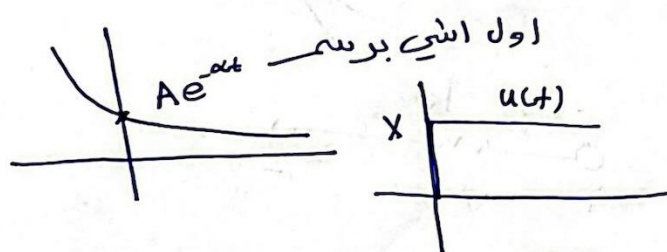 اول اشي برسم
Ae^-αt
X u(t)